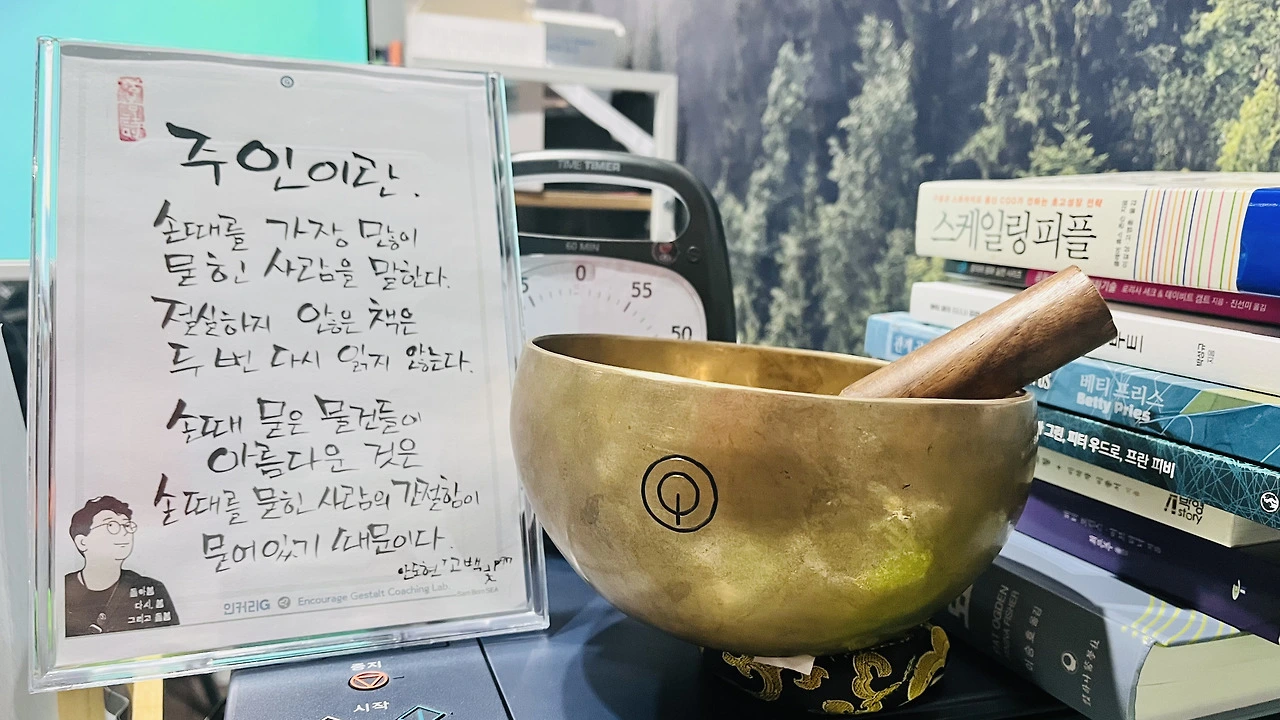 주인이란.
손때를 가장 많이
묻힌 사람을 말한다.
절실하지 않은 책은
두 번 다시 읽지 않는다.
손때 묻은 물건들이
아름다운 것은
손때를 묻힌 사람의 간절함이
묻어있기 때문이다.
안도현 '고백'
돌아봄
다시, 봄
그리고 돌봄
인커리G Encourage Gestalt Coaching Lab
중지
시작
TIME TIMER
60 MIN
5 0 55
50
스케일링 피플
로리사 세크 & 데이비드 캠트 지음 · 진선미 옮김
박성규 지음
베티 프리스
Betty Pries
그랜, 피터 우드로, 프란 피비
story
OGDEN
FISHER
이승호 옮김